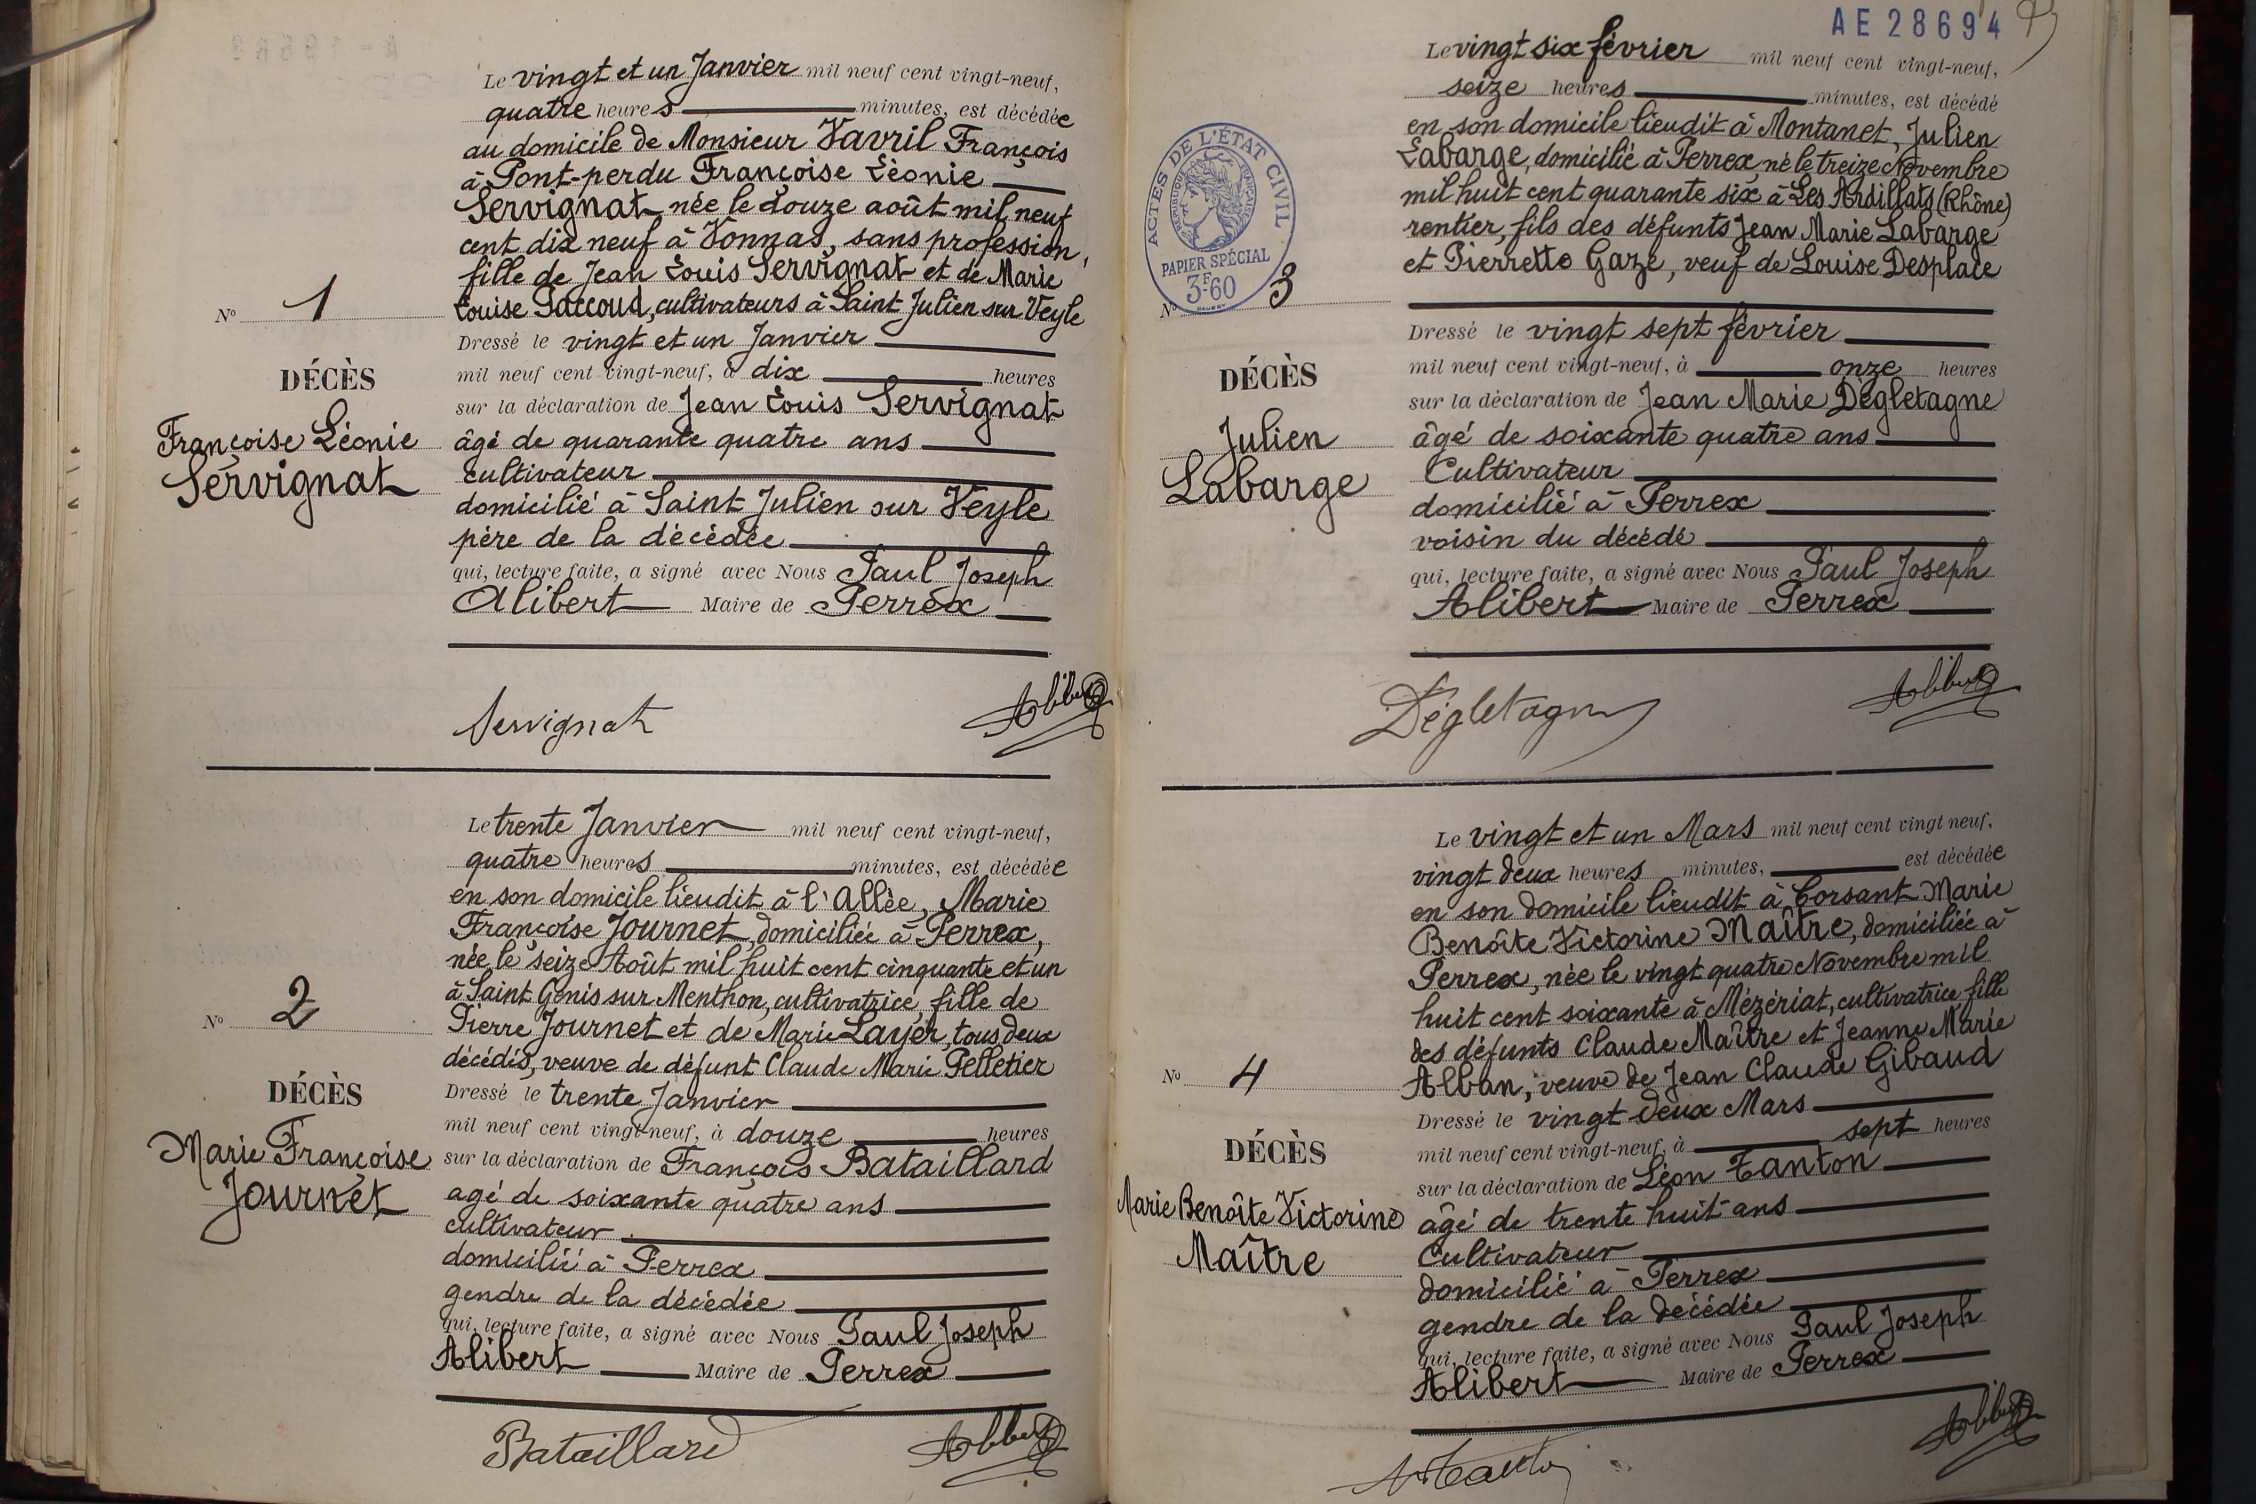 Le vingt et un Janvier mil neuf cent vingt-neuf,
quatre heures minutes, est décédée
au domicile de Monsieur Vavril François
à Pont-perdu Françoise Léonie
Servignat née le douze août mil neuf
cent dix neuf à Vonnas, sans profession,
fille de Jean Louis Servignat et de Marie
Louise Paccoud, cultivateurs à Saint Julien sur Veyle
Dressé le vingt et un Janvier
mil neuf cent vingt-neuf, à dix heures
sur la déclaration de Jean Louis Servignat
âgé de quarante quatre ans
cultivateur
domicilié à Saint Julien sur Veyle
père de la décédée
qui, lecture faite, a signé avec Nous Paul Joseph
Alibert Maire de Perrex
No 1
DÉCÈS
Françoise Léonie
Servignat
Servignat
Alibert
Le trente Janvier mil neuf cent vingt-neuf,
quatre heures minutes, est décédée
en son domicile lieudit à l'Allée, Marie
Françoise Journet, domiciliée à Perrex,
née le seize Août mil huit cent cinquante et un
à Saint Genis sur Menthon, cultivatrice, fille de
Pierre Journet et de Marie Layer, tous deux
décédés, veuve de défunt Claude Marie Pelletier
Dressé le trente Janvier
mil neuf cent vingt-neuf, à douze heures
sur la déclaration de François Bataillard
agé de soixante quatre ans
cultivateur
domicilié à Perrex
gendre de la décédée
qui, lecture faite, a signé avec Nous Paul Joseph
Alibert Maire de Perrex
No 2
DÉCÈS
Marie Françoise
Journet
Bataillard
Alibert
AE 28694
Le vingt six février mil neuf cent vingt-neuf,
seize heures minutes, est décédé
en son domicile lieudit à Montanet, Julien
Labarge, domicilié à Perrex, né le treize Novembre
mil huit cent quarante six à Les Ardillats (Rhône)
rentier, fils des défunts Jean Marie Labarge
et Pierrette Gaze, veuf de Louise Desplace
Dressé le vingt sept février
mil neuf cent vingt-neuf, à onze heures
sur la déclaration de Jean Marie Dégletagne
âgé de soixante quatre ans
Cultivateur
domicilié à Perrex
voisin du décédé
qui, lecture faite, a signé avec Nous Paul Joseph
Alibert Maire de Perrex
ACTES DE L'ÉTAT CIVIL
RÉPUBLIQUE FRANÇAISE
PAPIER SPÉCIAL
3F.60
No 3
DÉCÈS
Julien
Labarge
Dégletagne
Alibert
Le vingt et un Mars mil neuf cent vingt neuf,
vingt deux heures minutes, est décédée
en son domicile lieudit à Corsant Marie
Benoîte Victorine Maître, domiciliée à
Perrex, née le vingt quatre Novembre mil
huit cent soixante à Mézériat, cultivatrice fille
des défunts Claude Maître et Jeanne Marie
Alban, veuve de Jean Claude Gibaud
Dressé le vingt deux Mars
mil neuf cent vingt-neuf, à sept heures
sur la déclaration de Léon Tanton
âgé de trente huit ans
Cultivateur
domicilié à Perrex
gendre de la décédée
qui, lecture faite, a signé avec Nous Paul Joseph
Alibert Maire de Perrex
No 4
DÉCÈS
Marie Benoîte Victorine
Maître
Alibert